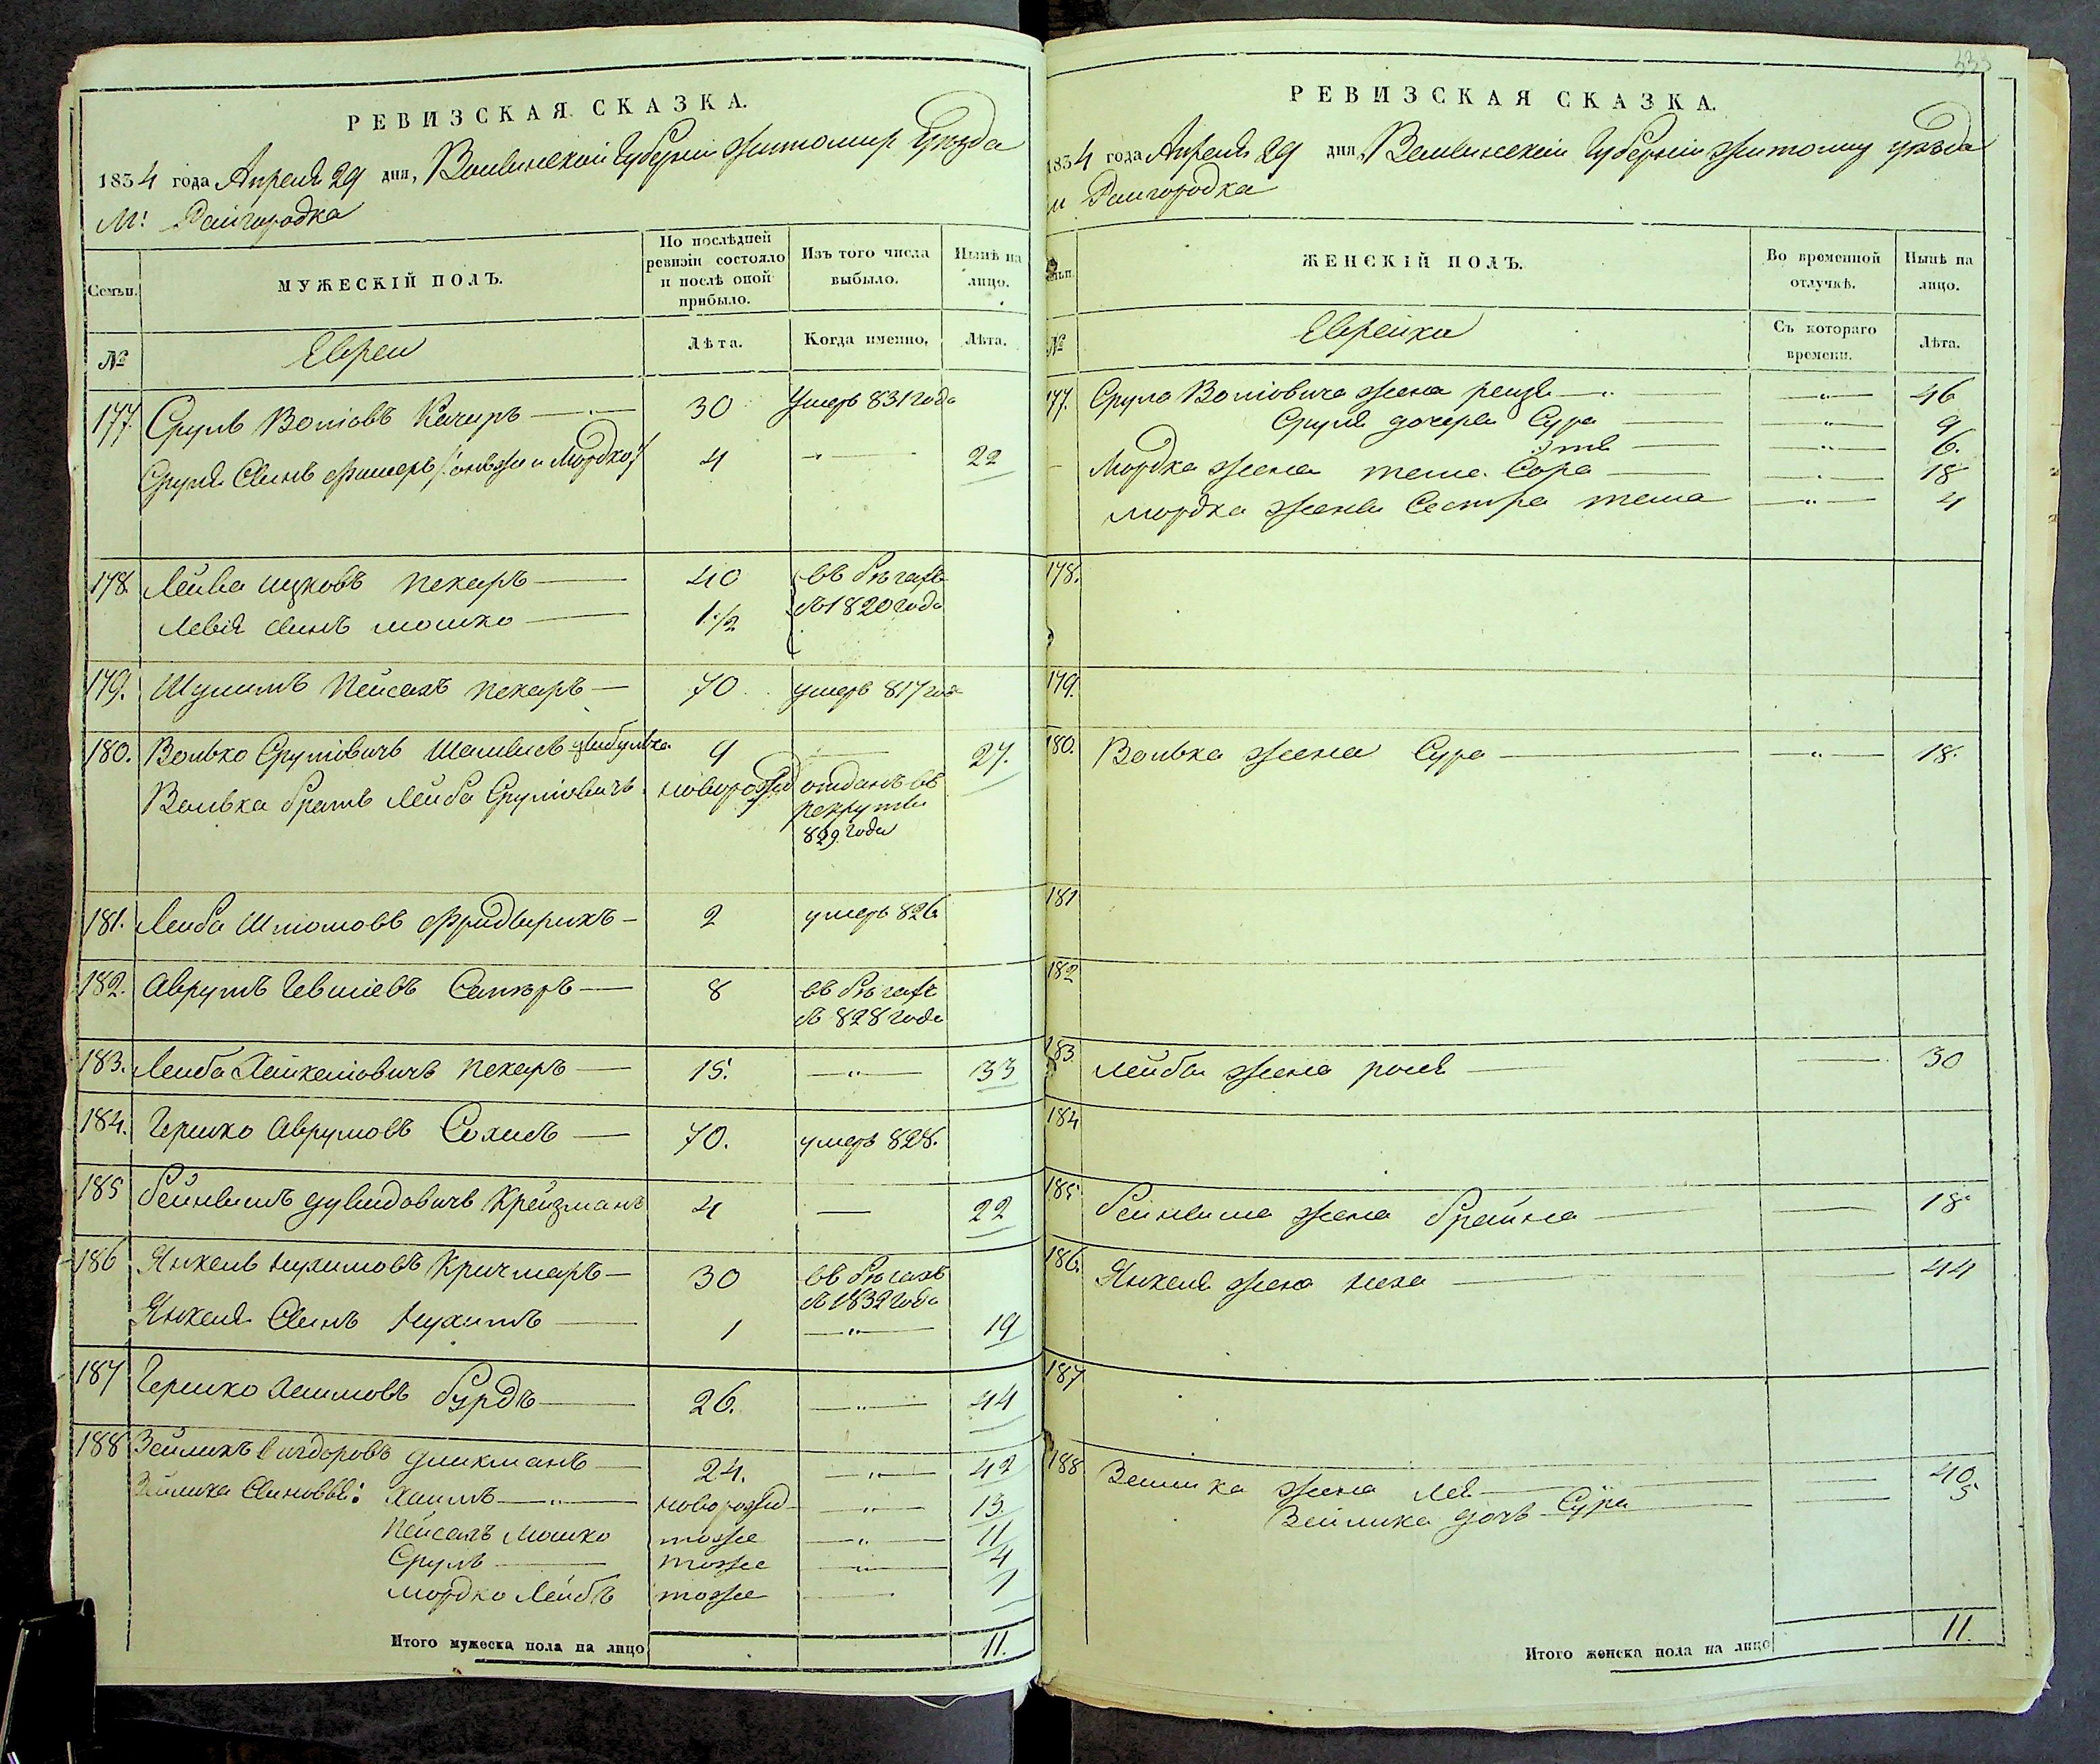 РЕВИЗСКАЯ СКАЗКА.
1834 года Апреля 29 дня, Волынской Губерніи Житомир Уезда
М: Райгородка
Семьи.
МУЖЕСКІЙ ПОЛЪ.
По послѣдней ревизіи состояло и послѣ оной прибыло.
Изъ того числа выбыло.
Нынѣ на лицо.
№
Евреи
Лѣта.
Когда именно.
Лѣта.
177. Сруль Волювъ Качуръ 30 Умеръ 831 года
Сруля Сынъ Фишель /: онъ же и Мордко :/ 4 22
178. Лейба Ицковъ пекаръ 40 въ бѣгахъ
сынъ мошко 1 1/2 съ 1820 года
179. Шулимъ Пейсахъ пекаръ 70 умеръ 817 года
180. Волько Срулювичъ цыбулька 9 27.
Волька братъ Лейба Срулювичъ новорожд отданъ въ
рекруты
829. года
181. Лейба Шломовъ Фридырихъ 2 умеръ 826
182. Аврумъ 8 въ бѣгахъ
съ 828 года
183. Лейба Хайкелювичъ пекаръ 15. 33
184. Гершко Аврумовъ 70. умеръ 828.
185 Бейнышъ Дувидовичъ Крейзманъ 4 22
186 Янкель Нухимовъ Кричмаръ 30 въ бѣгахъ
съ 1832 года
Янкеля Сынъ Нухимъ 1 19
187 Гершко Хаимовъ Бурдъ 26. 44
188 Зейликъ Вигдоровъ Дликманъ 24. 42
Зейлика Сыновья: Хаимъ новорожд 13.
Пейсахъ Мошко тоже 11
Сруль тоже 4
Мордко Лейбъ тоже 1
Итого мужеска пола на лицо 11.
535
РЕВИЗСКАЯ СКАЗКА.
1834 года Апреля 29 дня, Волынской Губерніи Житомир уезда
м Райгородка
Семьи.
ЖЕНСКІЙ ПОЛЪ.
Во временной отлучкѣ.
Нынѣ на лицо.
№
Еврейки
Съ котораго времени.
Лѣта.
177. Срула Волювича жена рейзя 46
Сруля дочери Сура 9
Этя 6.
Мордка жена Сора 18
Мордка жены Сестра 4
178.
179.
180. Волька жена Сура 18.
181
182
183 Лейбы жена 30
184
185 Бейныша жена Брайна 18
186. Янкеля жена 44
187
188 Зейлика жена Лея 40
Зейлика дочь Сура 5
Итого женска пола на лицо 11.